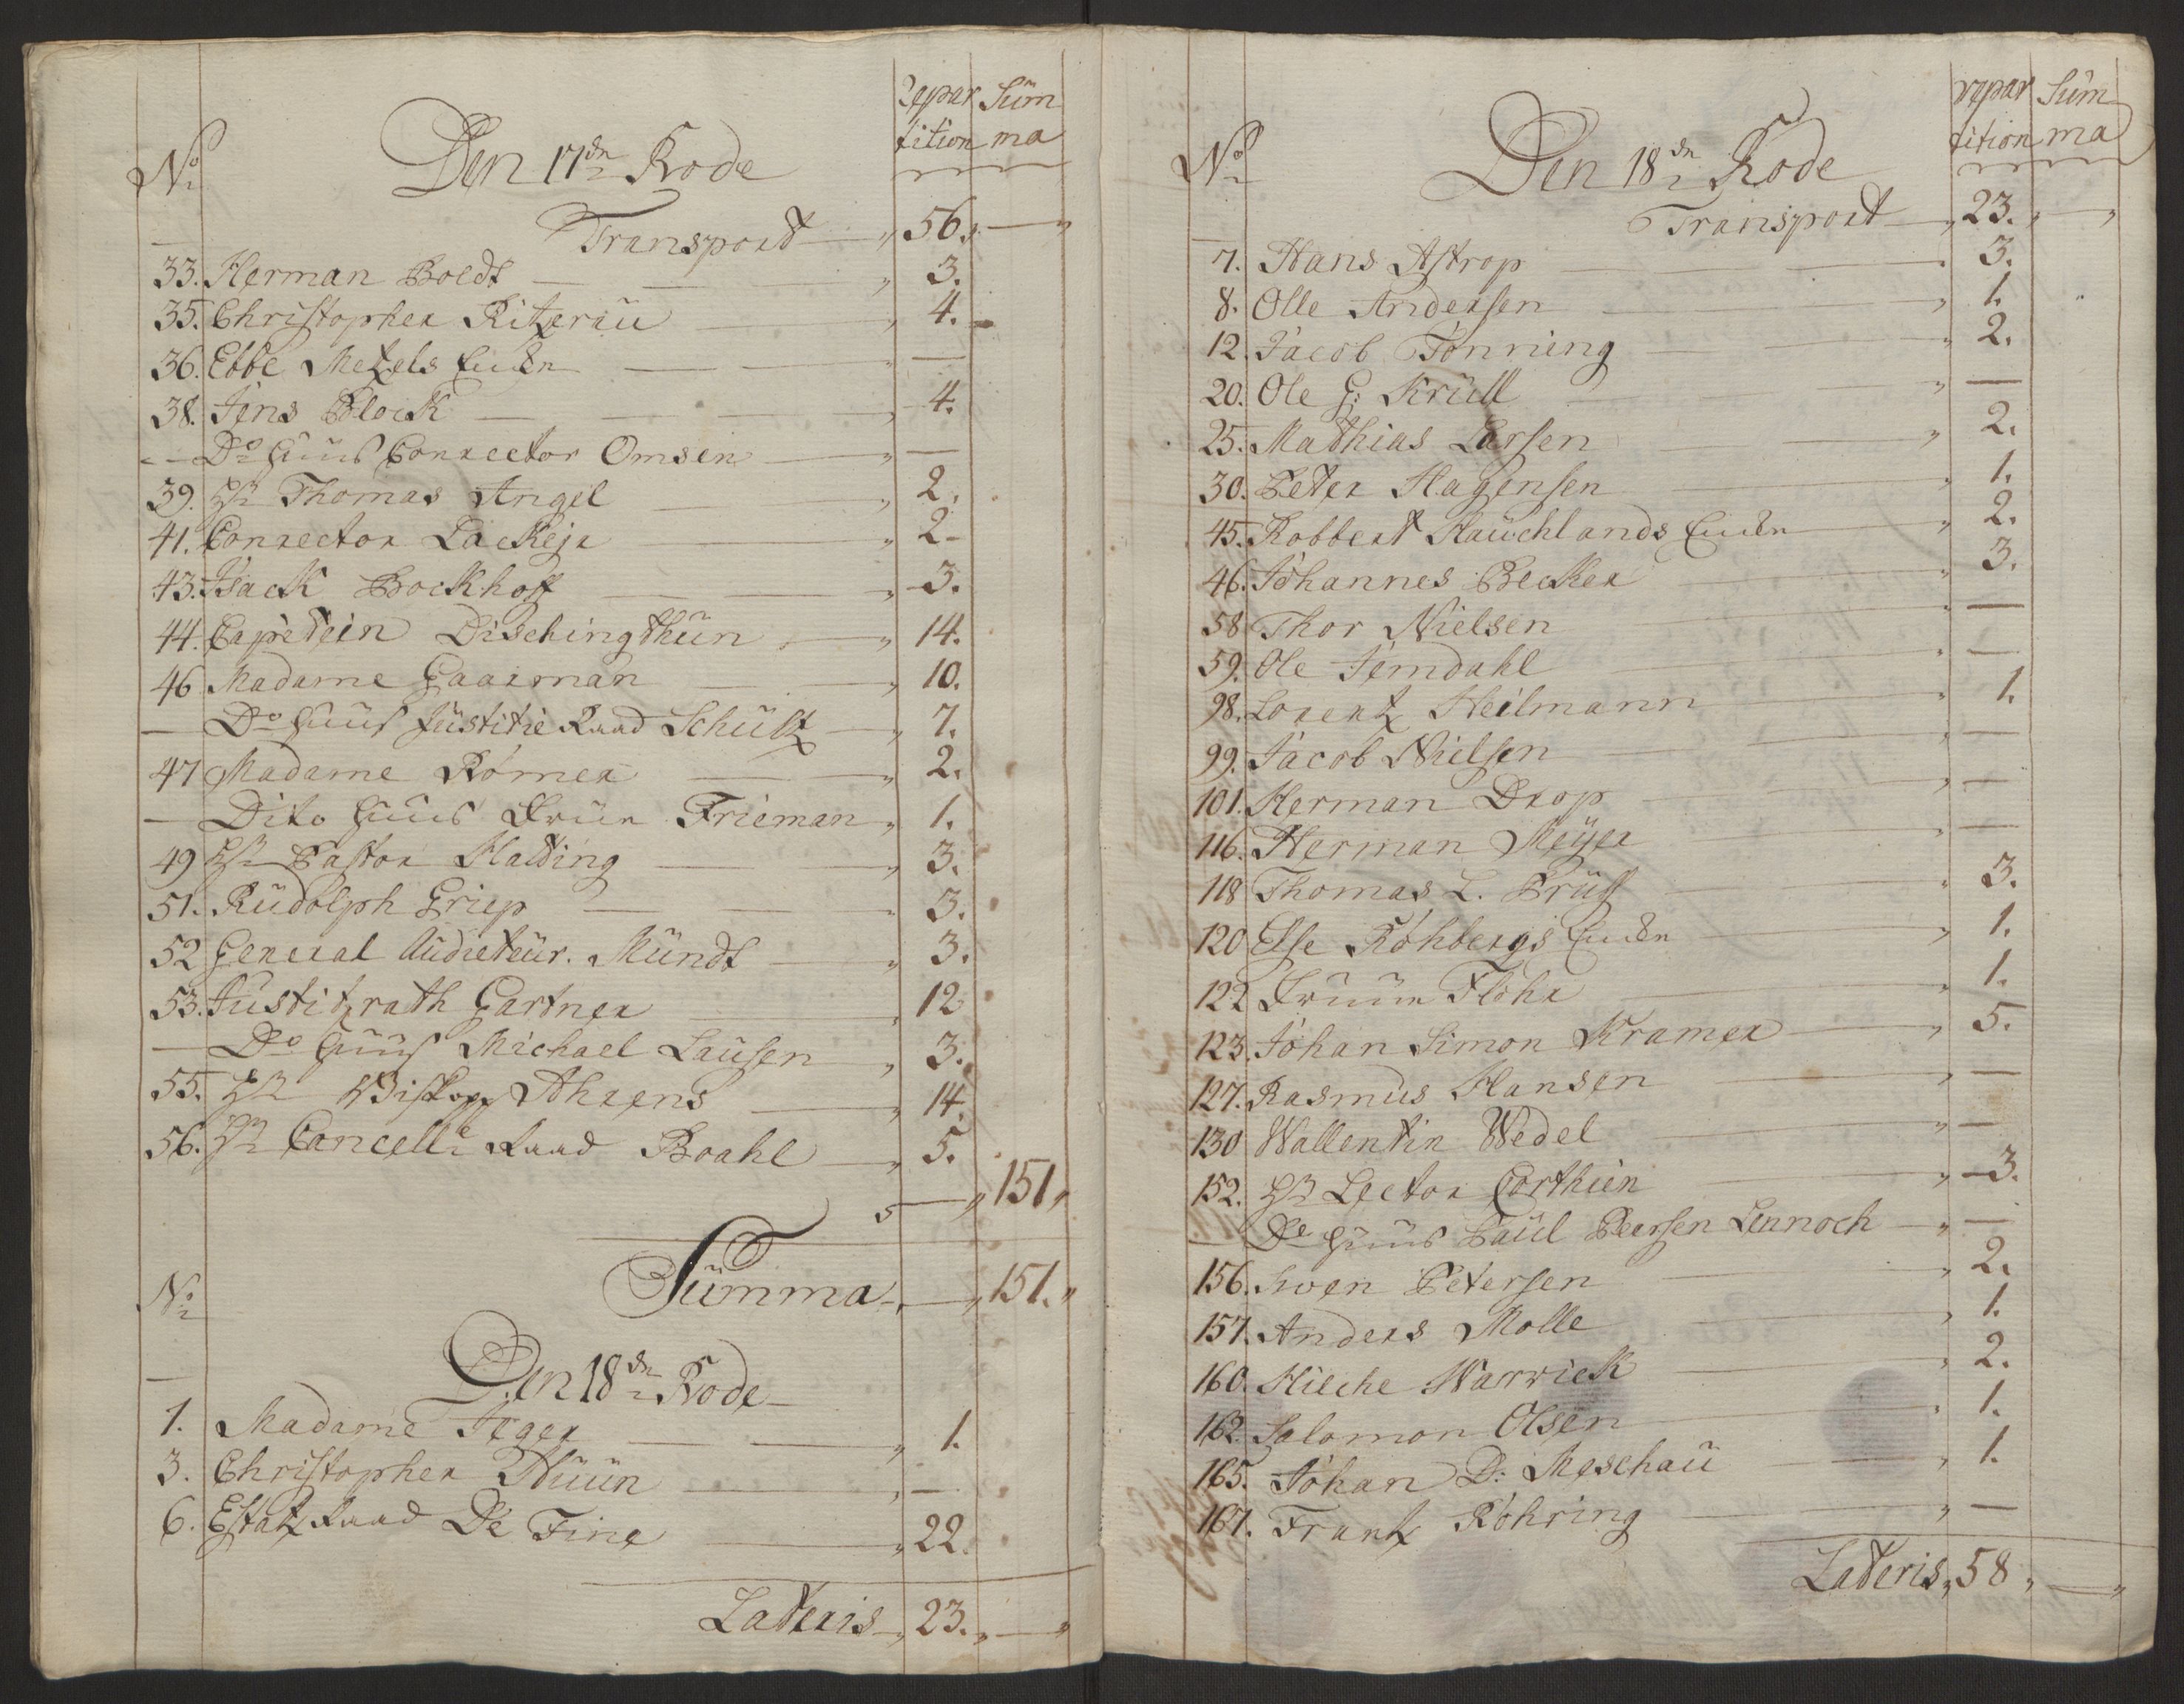 No Den 17de Rode Repar Süm
tition ma
Transport 56.
33. Herman Boldt 3.
35. Christopher Ritzerau 4.
36. Ebbe Metzels Enken —
38. Jens Block 4.
— Do Huus Conrector Omsen —
39. Hr Thomas Angel 2.
41. Conrector Lackejr 2
43. Isack Bockhoff 3.
44. Capitein Dischingthün 14.
46 Madame Gaarman 10.
— Do Huus Justitie Raad Schultz 7.
47 Madame Römer 2.
— Dito Huus Frue Frieman 1.
49 Hr Pastor Halding 3.
51. Rüdolph Griep 3.
52 General Audieteür. Mündt 3.
53. Justitzrath Gartner 12
— Do Huus Michael Lausen 3.
55. Hr Biskop Ahrens 14.
56. Hr Cancelle Raad Boahl 5.
151
Sümma 151.
No
Den 18de Rode
1. Madame Jeger 1.
3. Christopher Thuün —
6. Estatz Raad De Fine 22.
Lateris 23.
No Den 18de Rode repar Süm
tition ma
Transport 23.
7. Hans Astrop 3.
8. Olle Andersen 1.
12. Jacob Tönning 2.
20. Ole G: Krüll —
25. Mathias Larsen 2.
30. Peter Hagensen 1.
45. Robbert Hauchlands Enken 2.
46. Johannes Becker 3.
58 Thor Nielsen —
59. Ole Jemdahl —
98. Lorentz Heilmann 1.
99. Jacob Nielsen —
101. Herman Drop —
116. Herman Meÿer —
118 Thomas L. Brüss 3.
120 Else Röhbergs Enken 1.
122 Fruen Flöhr 1.
123. Johan Simon Kramer 5.
127. Rasmus Hansen —
130 Wallentin Wedel —
152. Hr Lector Corthien 3.
Do Huus Paül Peersen Lennoch —
156. Swen Petersen 2.
157. Anders Molle 1.
160. Hilche Warwick 2.
162. Salomon Olsen 1.
165. Johan D: Meschaü 1.
167. Frantz Röhring —
Lateris 58